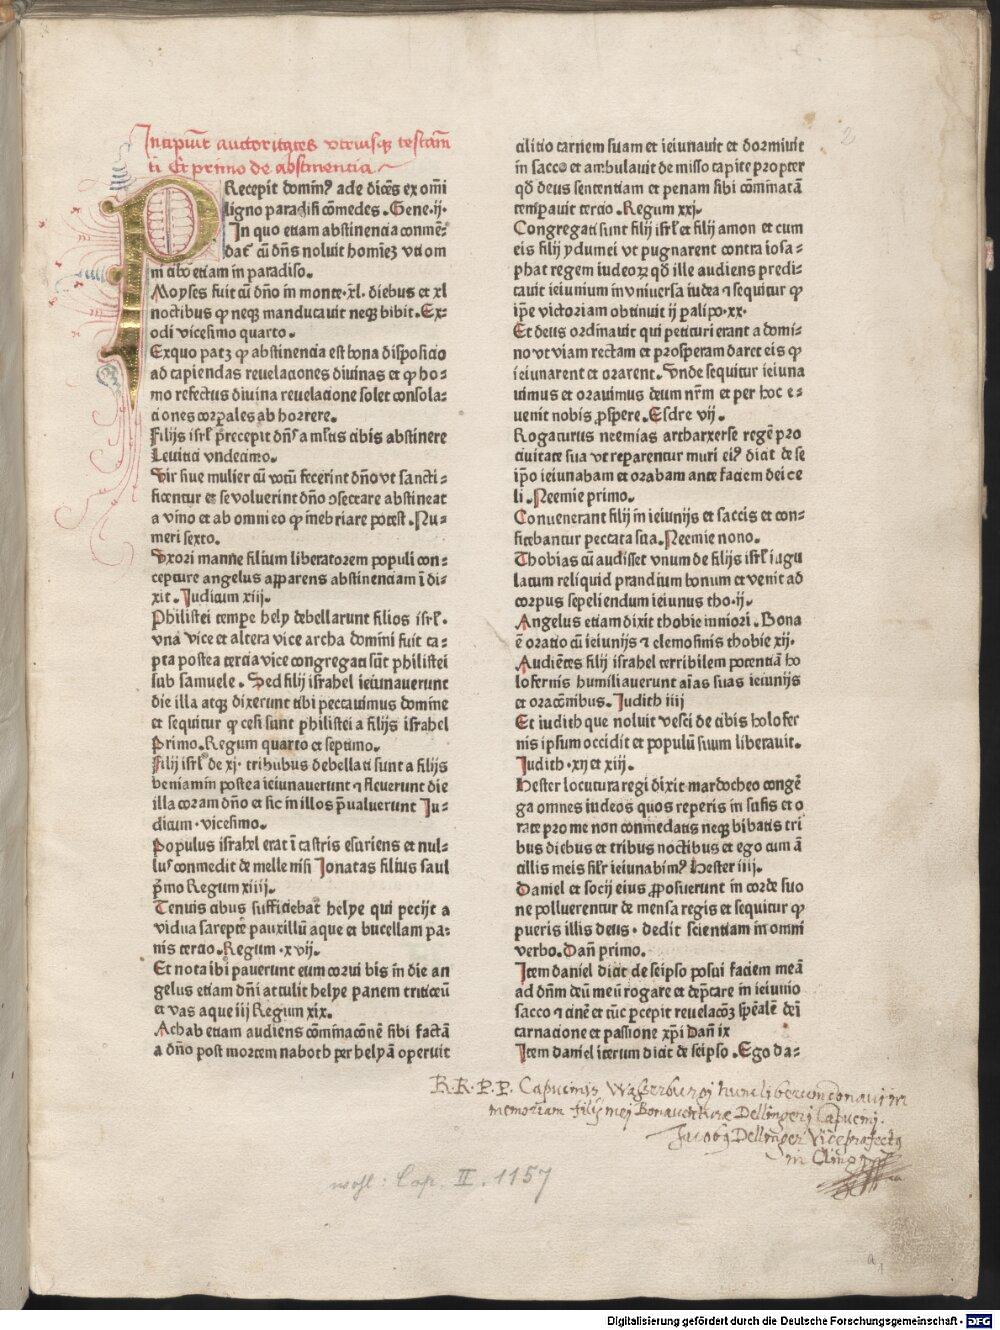 Incipiūt auctoritates vtriusqꝫ testam̄
ti Et primo de abstinencia
PRecepit domin⁹ ade dicēs ex om̄i
ligno paradisi cōmedes . Gene . ij .
In quo etiam abstinencia conmē⸗
dat᷑ cū dn̄s noluit homīeꝫ vti om
ni cibo etiam in paradiso .
Moyses fuit cū dn̄o in monte . xl . diebus et xl
noctibus ꝙ neqꝫ manducauit neqꝫ bibit . Ex⸗
odi vicesimo quarto .
Exquo patꝫ ꝙ abstinencia est bona disposicio
ad capiendas reuelaciones diuinas et ꝙ ho⸗
mo refectus diuina reuelacione solet consola⸗
ciones corꝑales ab horrere .
Filijs isrl̄ p̄recepit dn̄s a m̄ltis cibis abstinere
Leuitici vndecimo .
Vir siue mulier cū votū fecerint dn̄o vt sancti⸗
ficentur et se voluerint dn̄o ↄsecrare abstineat
a vino et ab omni eo ꝙ inebriare potest . Nu⸗
meri sexto .
Vxori manne filium liberatorem populi con⸗
cepture angelus apparens abstinenciam ī di⸗
xit . Judicum xiij .
Philistei tempe hely debellarunt filios isrl̄ .
vna vice et altera vice archa domini fuit ca⸗
pta postea tercia vice congregati sūt philistei
sub samuele . Sed filij israhel ieiunauerunt
die illa atqꝫ dixerunt tibi peccauimus domine
et sequitur ꝙ cesi sunt philistei a filijs israhel
Primo . Regum quarto et septimo .
Filij isrl̄ de xj . tribubus debellati sunt a filijs
beniamin postea ieiunauerunt ⁊ fleuerunt die
illa coram dn̄o et sic in illos p̄ualuerunt Ju⸗
dicum . vicesimo .
Populus israhel erat ī castris esuriens et nul⸗
lus conmedit de melle nisi Jonatas filius saul
p̄mo Regum xiiij .
Tenuis cibus sufficiebat helye qui pecijt a
vidua sarepte pauxillū aque et bucellam pa⸗
nis tercio . Regum . xvij .
Et nota ibi pauerunt eum corui bis in die an
gelus etiam dn̄i attulit helye panem triticeū
et vas aque iij Regum xix .
Achab etiam audiens cōminacōnē sibi factā
a dn̄o post mortem naboth per helyā operuit
cilicio carnem suam et ieiunauit et dormiuit
in sacco et ambulauit demisso capite propter
qd̄ deus sentenciam et penam sibi cōminatā
temꝑauit tercio . Regum xxj .
Congregati sunt filij isrl̄ et filij amon et cum
eis filij ydumei vt pugnarent contra iosa⸗
phat regem iudeoꝝ qd̄ ille audiens predi⸗
cauit ieiunium in vniuersa iudea ⁊ sequitur ꝙ
ip̄e victoriam obtinuit ij ꝑalipo . xx .
Et deus ordinauit qui petituri erant a domi⸗
no vt viam rectam et prosperam daret eis ꝙ
ieiunarent et orarent . Vnde sequitur ieiuna
uimus et orauimus deum nr̄m et per hoc e⸗
uenit nobis ꝓspere . Esdre vij .
Rogaturus neemias artharxerse regē pro
ciuitate sua vt reparentur muri ei⁹ dicit de se
ip̄o ieiunabam et orabam ante faciem dei ce
li . Neemie primo .
Conuenerant filij in ieiunijs et saccis et con⸗
fitebantur peccata sua . Neemie nono .
Thobias cū audisset vnum de filijs isrl̄ iugu
latum reliquid prandium bonum et venit ad
corpus sepeliendum ieiunus tho . ij .
Angelus etiam dixit thobie iuniori . Bona
ē oratio cū ieiunijs ⁊ elemosinis thobie xij .
Audiētes filij israhel terribilem potenciā ho
lofernis humiliauerunt aīas suas ieiunijs
et oracōnibus . Judith iiij
Et iudith que noluit vesci de cibis holofer
nis ipsum occidit et populū suum liberauit .
Judith . xij et xiij .
Hester locutura regi dixit mardocheo congē
ga omnes iudeos quos reperis in susis et o
rate pro me non conmedatis neqꝫ bibatis tri
bus diebus et tribus noctibus et ego cum ā
cillis meis sil̄r ieiunabim⁹ Hester iiij .
Daniel et socij eius ꝓposuerunt in corde suo
ne polluerentur de mensa regis et sequitur ꝙ
pueris illis deus . dedit scientiam in omni
verbo . Dan̄ primo .
Item daniel dicit de seipso posui faciem meā
ad dn̄m deū meū rogare et dep̄care in ieiunio
sacco ⁊ cinē et tūc ꝑcepit reuelacōꝫ sp̄ealē de ī
carnacione et passione xp̄i Dan̄ ix
Item daniel iterum dicit de seipso . Ego da⸗
R.R.P.P. Capucinis Wasserburgi hunc liberum donaui in
memoriam filij mej Bonauenturæ Dellingerj Capucinj.
Jacobus Dellinger Viceprafectus
in Cling
wohl: Cap. II. 1157
2
a
1
Digitalisierung gefördert durch die Deutsche Forschungsgemeinschaft - DFG